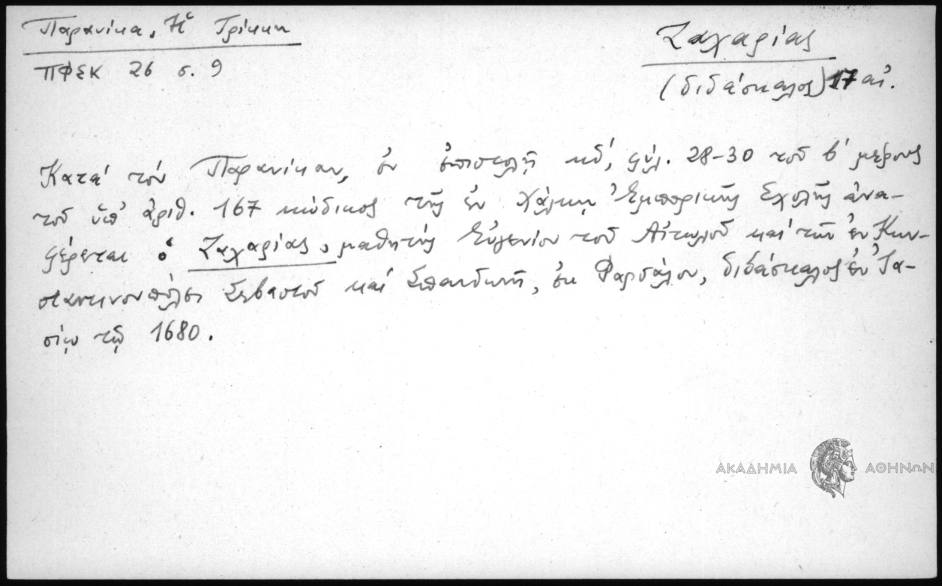 Παρανίκα, Ἡ Τρίκκη
ΠΦΣΚ 26 σ. 9
Ζαχαρίας
(διδάσκαλος) 17 αἰ.
Κατά τόν Παρανίκαν, ἐν ἐπιστολῇ κδ΄, φύλ. 28-30 τοῦ β΄ μέρους
τοῦ ὑπ' ἀριθ. 167 κώδικος τῆς ἐν Χάλκῃ Ἐμπορικῆς Σχολῆς ἀνα-
φέρεται ὁ Ζαχαρίας, μαθητής Εὐγενίου τοῦ Αἰτωλοῦ καί τῶν ἐν Κων-
σταντινουπόλει Σεβαστοῦ καί Σπανδωνῆ, ἐκ Φαρσάλου, διδάσκαλος ἐν Ἰα-
σίῳ τῷ 1680.
ΑΚΑΔΗΜΙΑ ΑΘΗΝΩΝ